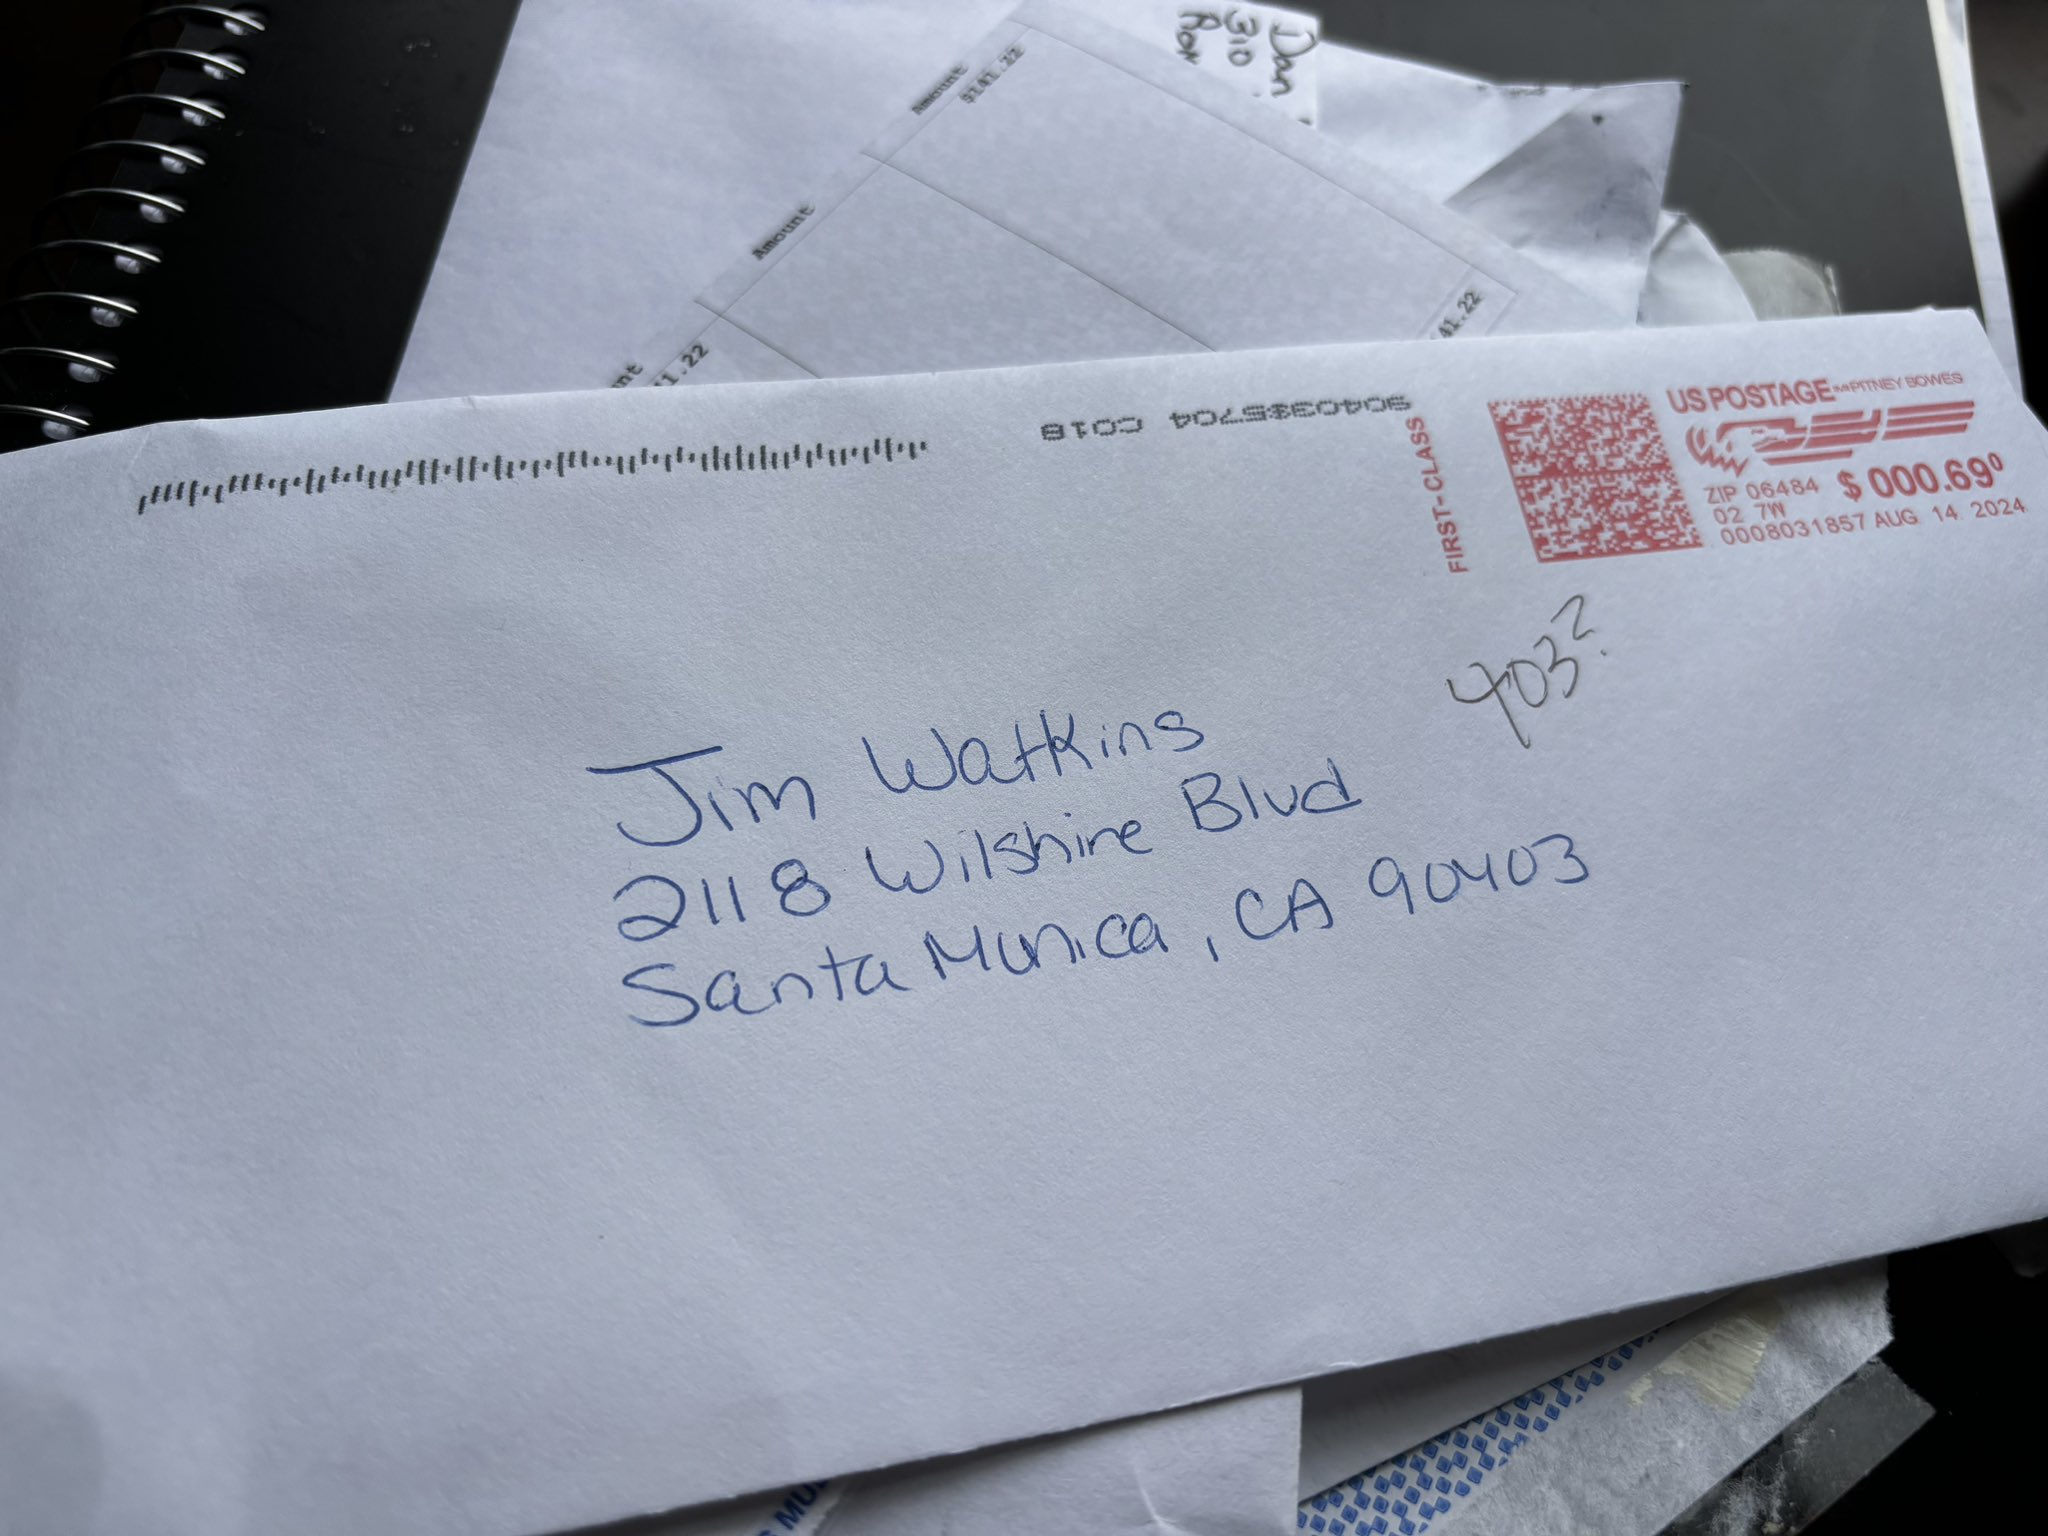 Dan
310
Amount
$141.22
Amount
41.22
1.22
90403$5704 C018
FIRST-CLASS
US POSTAGE PITNEY BOWES
ZIP 06484 $ 000.69⁰
02 7W
0008031857 AUG 14 2024
403?
Jim Watkins
2118 Wilshire Blvd
Santa Munica, CA 90403